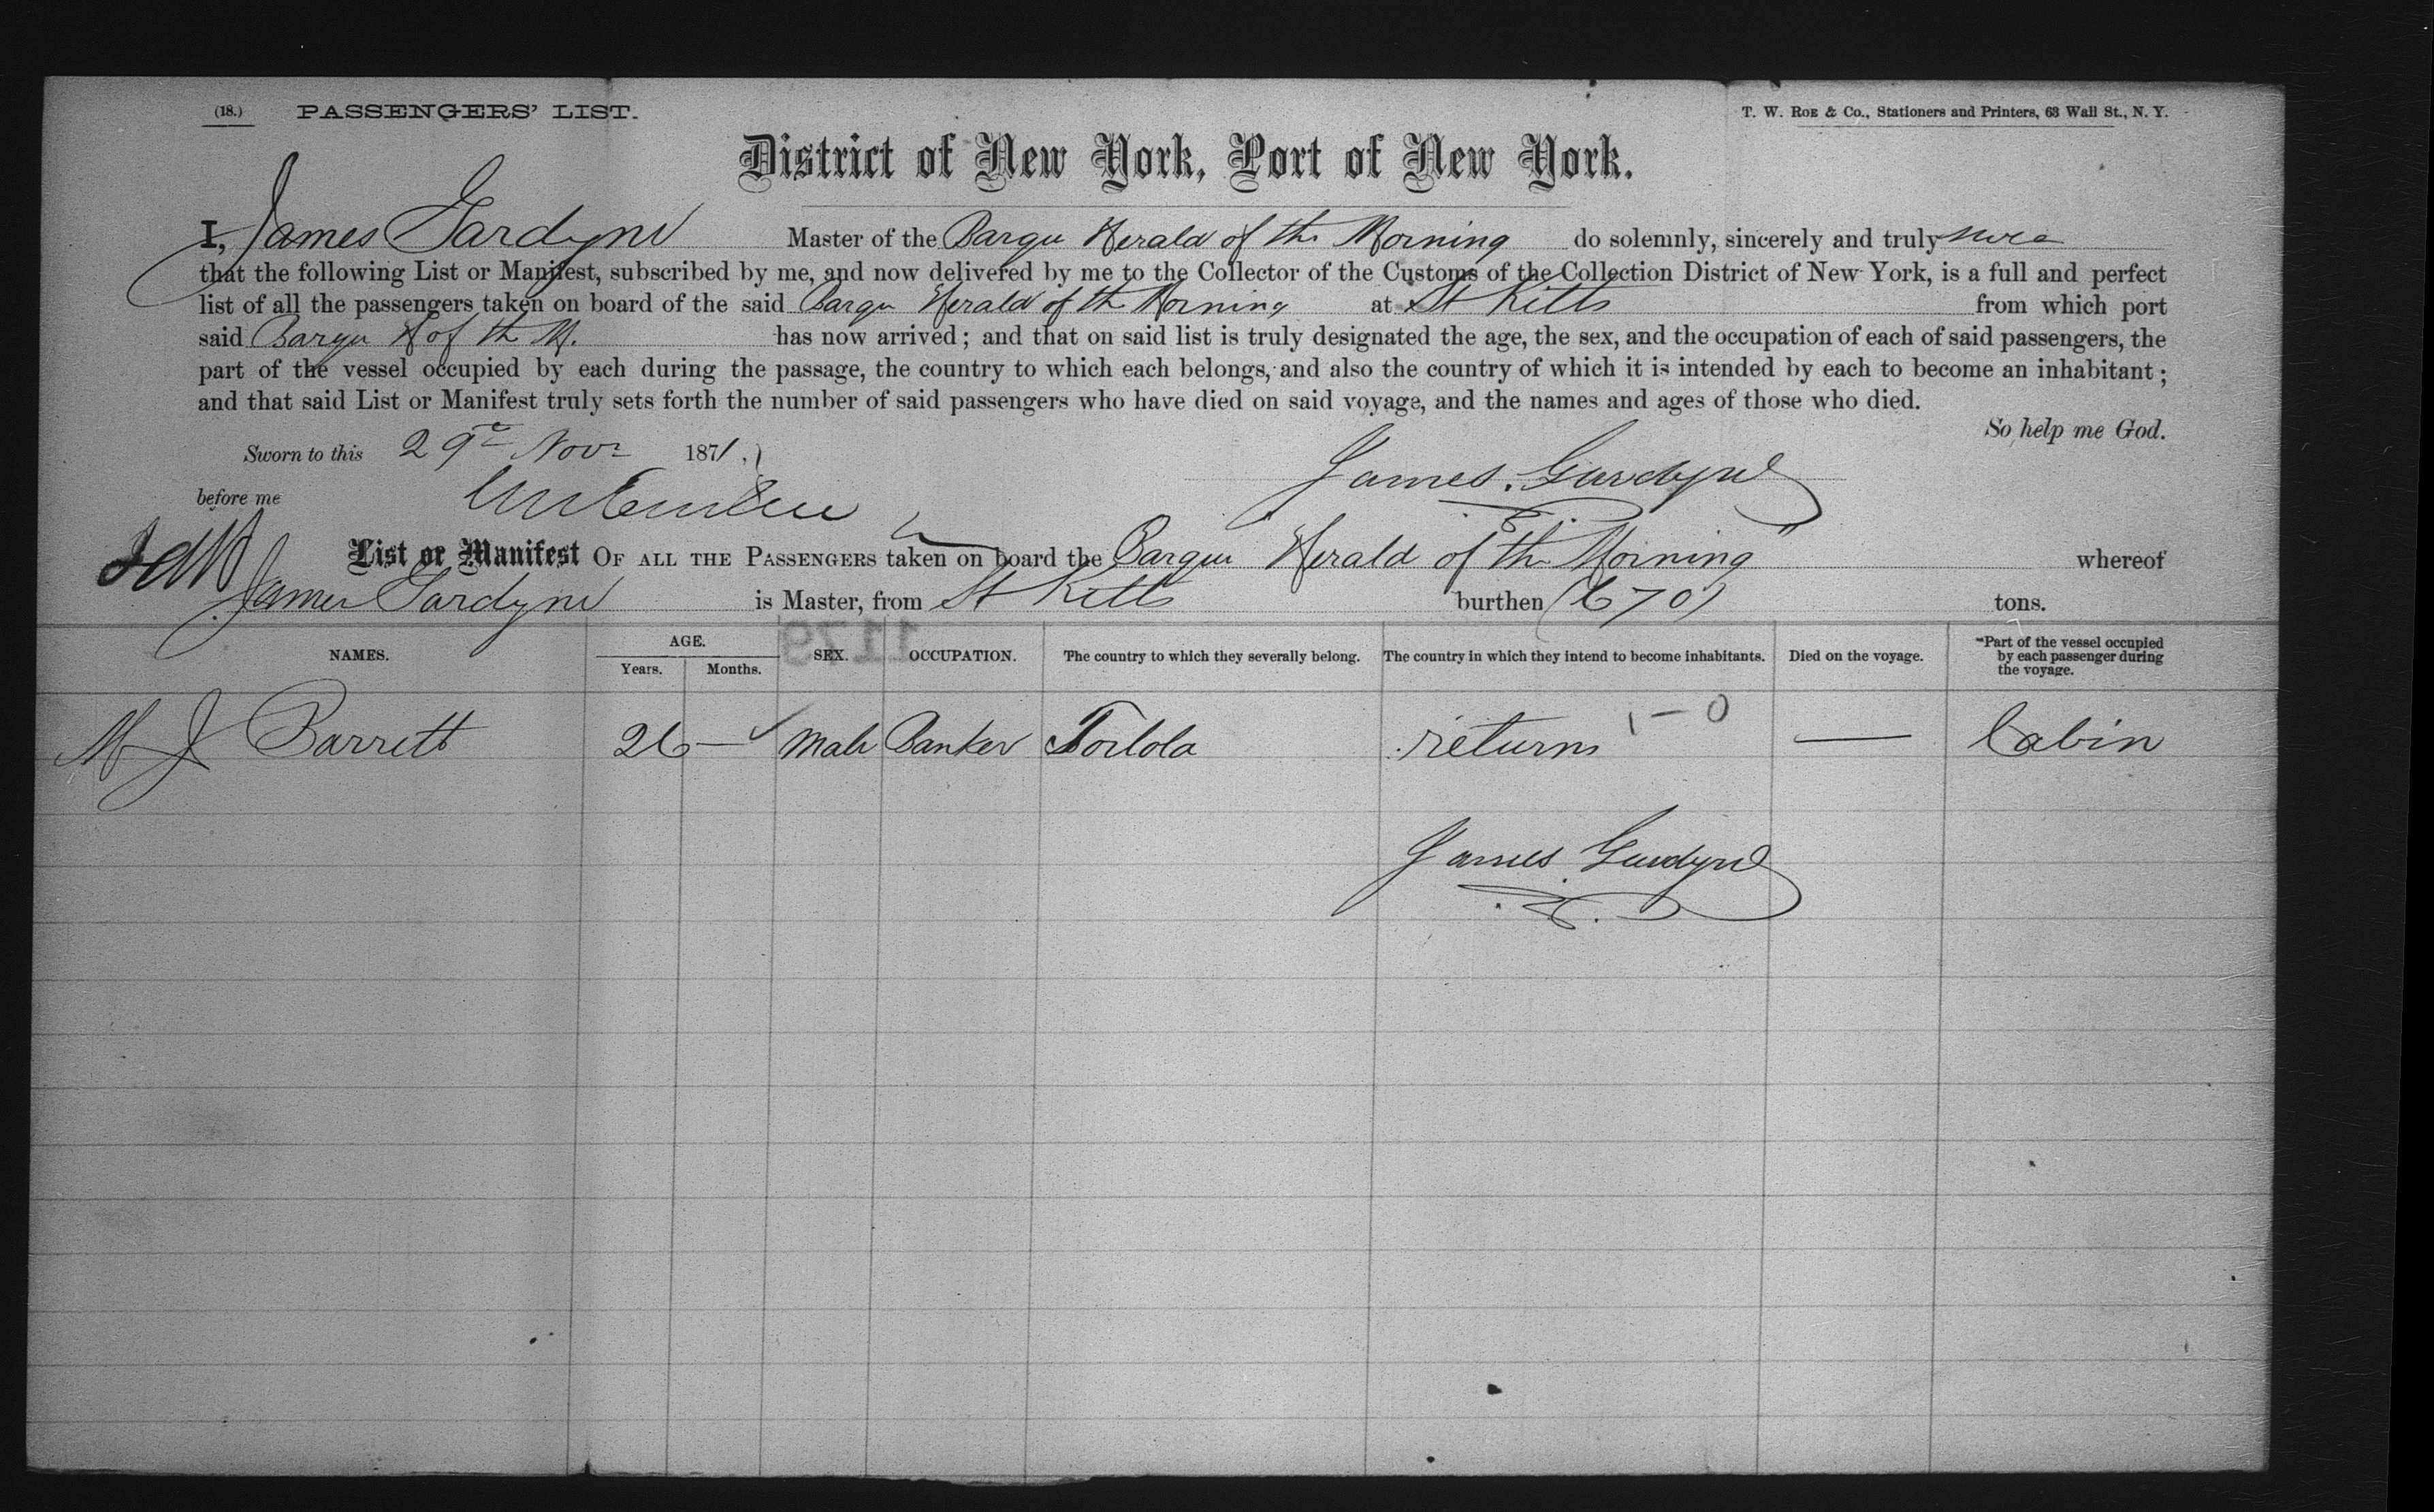 (18.) PASSENGERS' LIST.
T. W. ROE & Co., Stationers and Printers, 63 Wall St., N. Y.
District of New York, Port of New York.
I, James Gardyne Master of the Barque Herald of the Morning do solemnly, sincerely and truly
that the following List or Manifest, subscribed by me, and now delivered by me to the Collector of the Customs of the Collection District of New York, is a full and perfect
list of all the passengers taken on board of the said Barque Herald of the Morning at St Kitts from which port
said Barque H of the M. has now arrived; and that on said list is truly designated the age, the sex, and the occupation of each of said passengers, the
part of the vessel occupied by each during the passage, the country to which each belongs, and also the country of which it is intended by each to become an inhabitant;
and that said List or Manifest truly sets forth the number of said passengers who have died on said voyage, and the names and ages of those who died.
So help me God.
Sworn to this 29th Novr 1871.
before me
James. Gardyne
List or Manifest OF ALL THE PASSENGERS taken on board the Barque Herald of the Morning" whereof
James Gardyne is Master, from St Kitts burthen (670) tons.
NAMES. AGE. Years. Months. SEX. OCCUPATION. The country to which they severally belong. The country in which they intend to become inhabitants. Died on the voyage. Part of the vessel occupied by each passenger during the voyage.
1179
M J Barrett 26 — Male Banker Tortola returns 1 – 0 — Cabin
James Gardyne